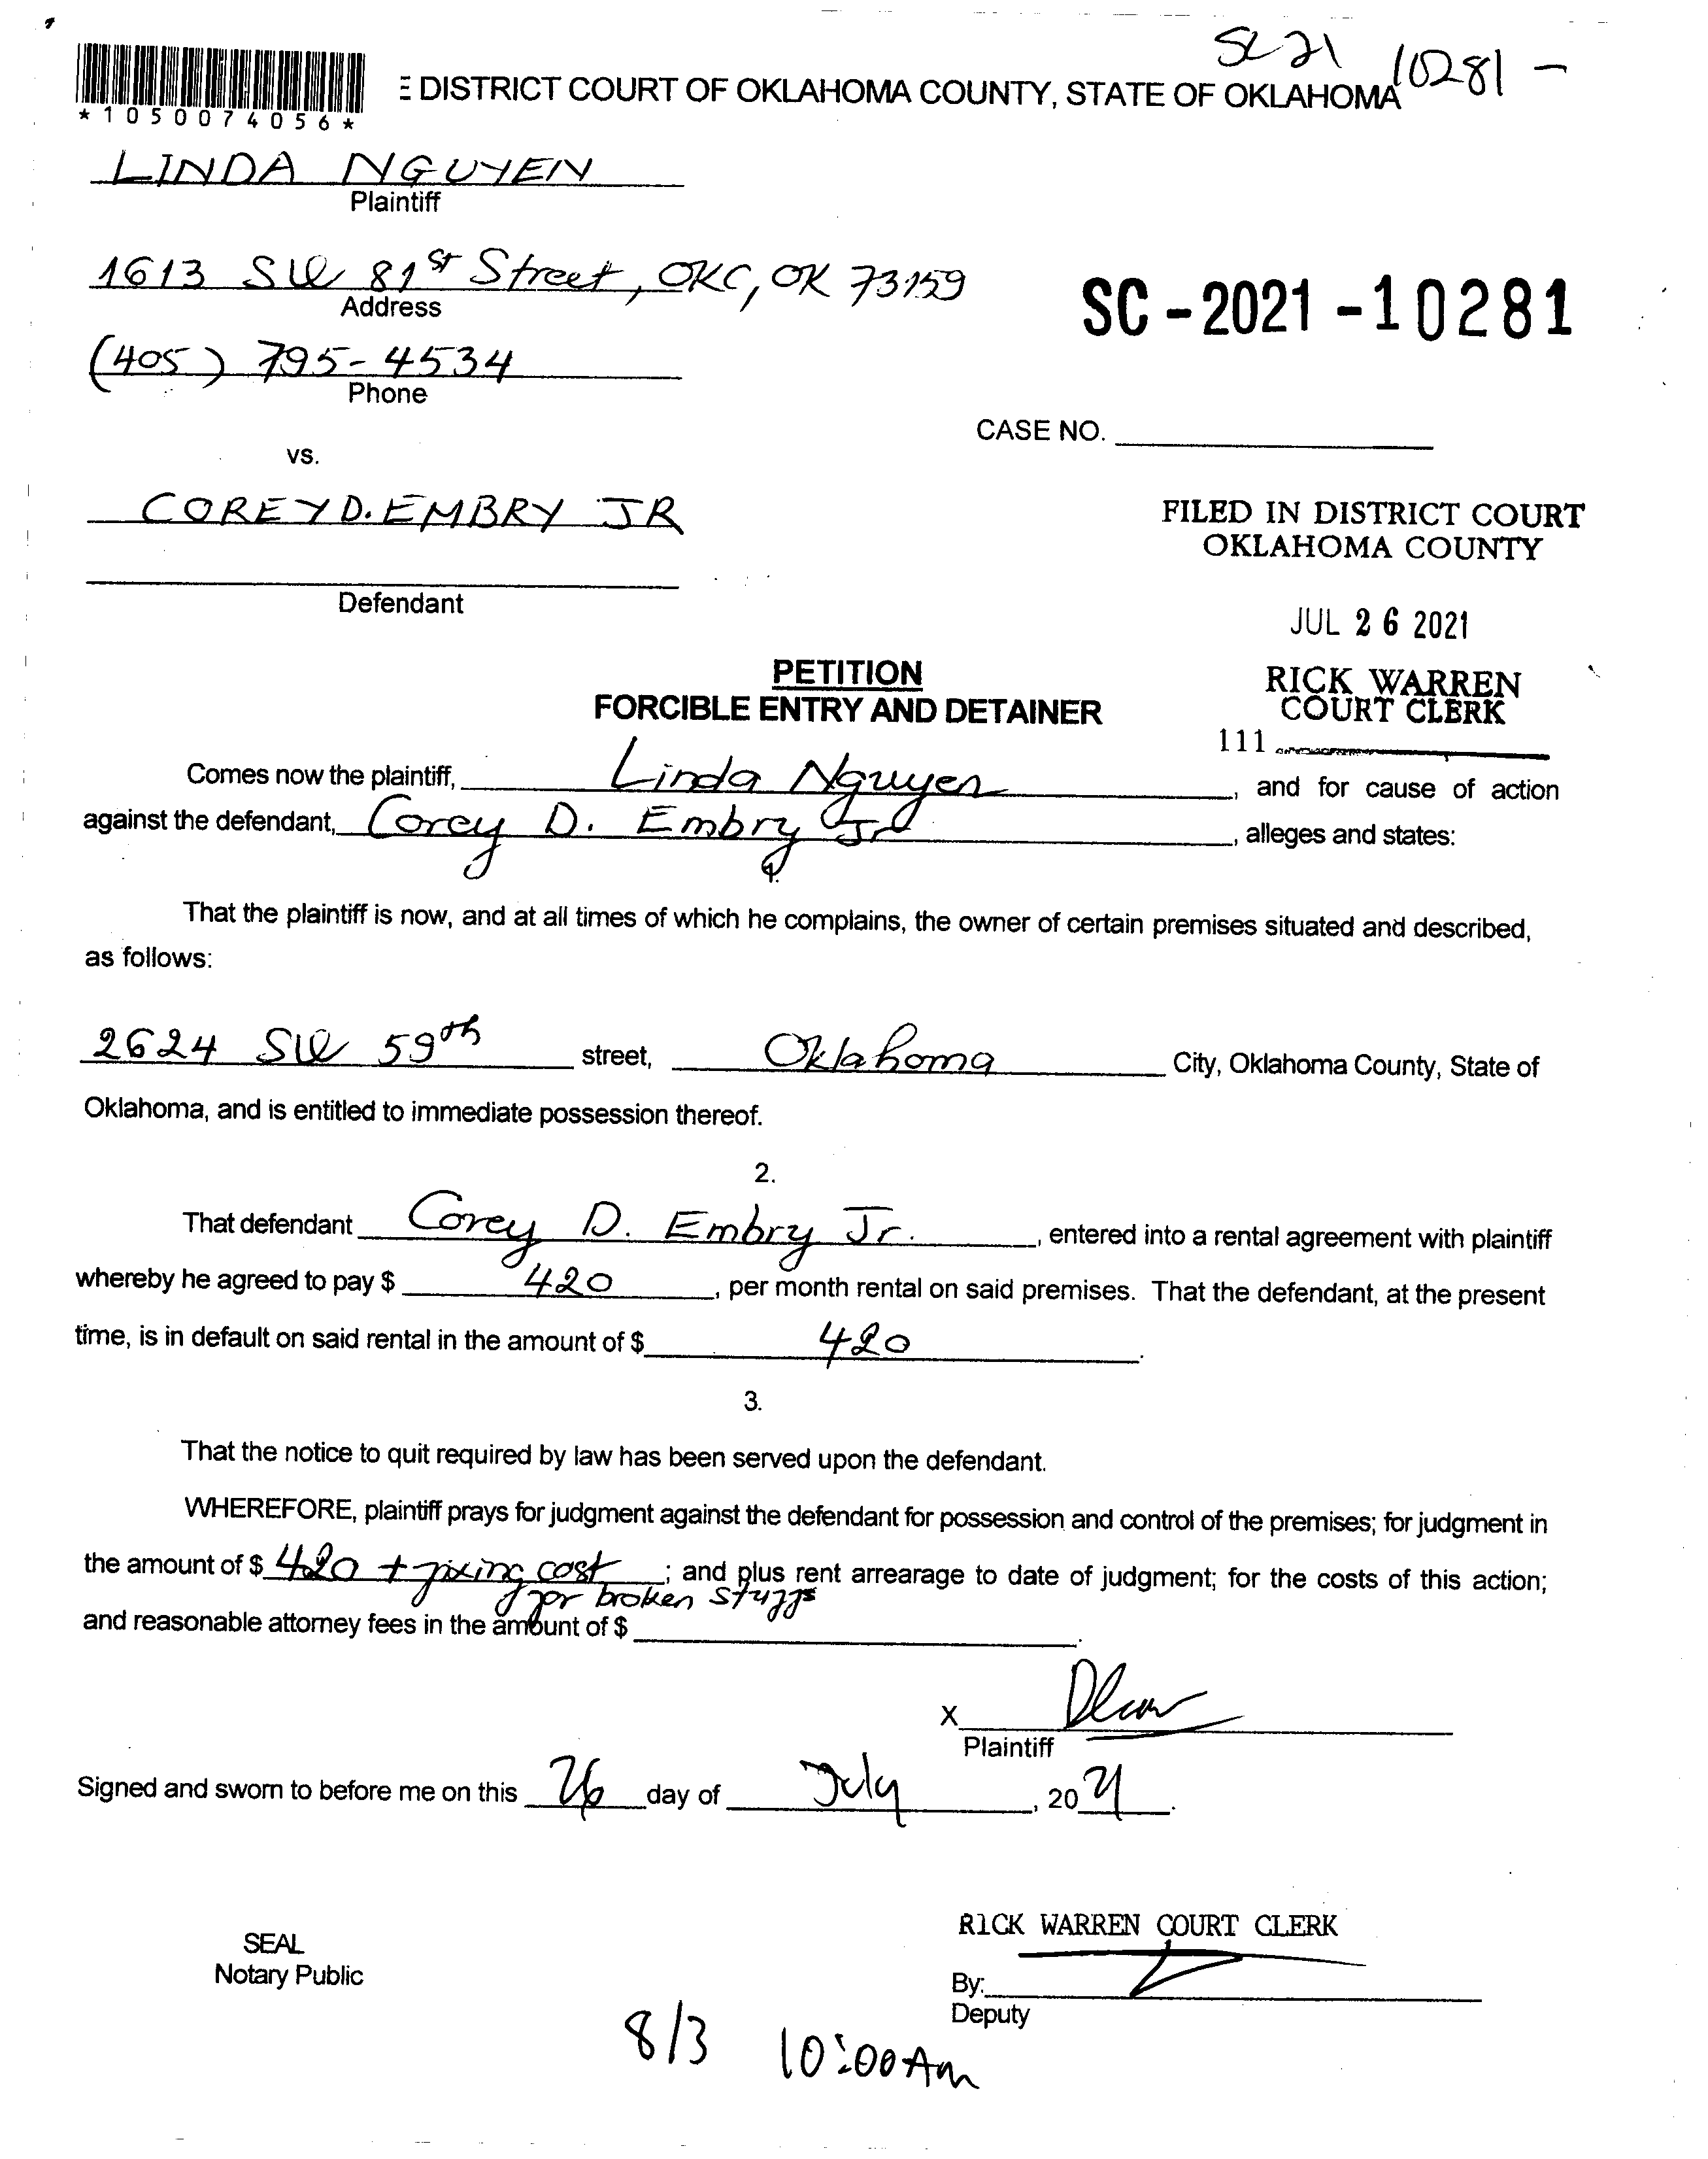 SC 21 10281 -
E DISTRICT COURT OF OKLAHOMA COUNTY, STATE OF OKLAHOMA
*1050074056*
LINDA NGUYEN
Plaintiff
1613 SW 81st Street, OKC, OK 73159
Address
SC - 2021 - 10281
(405) 795-4534
Phone
CASE NO.
vs.
COREY D. EMBRY JR
FILED IN DISTRICT COURT
OKLAHOMA COUNTY
Defendant
JUL 26 2021
PETITION
FORCIBLE ENTRY AND DETAINER
RICK WARREN
COURT CLERK
111
Comes now the plaintiff, Linda Nguyen, and for cause of action
against the defendant, Corey D. Embry Jr, alleges and states:
1.
That the plaintiff is now, and at all times of which he complains, the owner of certain premises situated and described,
as follows:
2624 SW 59th street, Oklahoma City, Oklahoma County, State of
Oklahoma, and is entitled to immediate possession thereof.
2.
That defendant Corey D. Embry Jr., entered into a rental agreement with plaintiff
whereby he agreed to pay $ 420, per month rental on said premises. That the defendant, at the present
time, is in default on said rental in the amount of $ 420.
3.
That the notice to quit required by law has been served upon the defendant.
WHEREFORE, plaintiff prays for judgment against the defendant for possession and control of the premises; for judgment in
the amount of $ 420 + fixing cost; and plus rent arrearage to date of judgment; for the costs of this action;
for broken stuffs
and reasonable attorney fees in the amount of $.
X
Plaintiff
Signed and sworn to before me on this 26 day of July, 2021.
RICK WARREN COURT CLERK
SEAL
Notary Public
By:
Deputy
8/3 10:00 Am